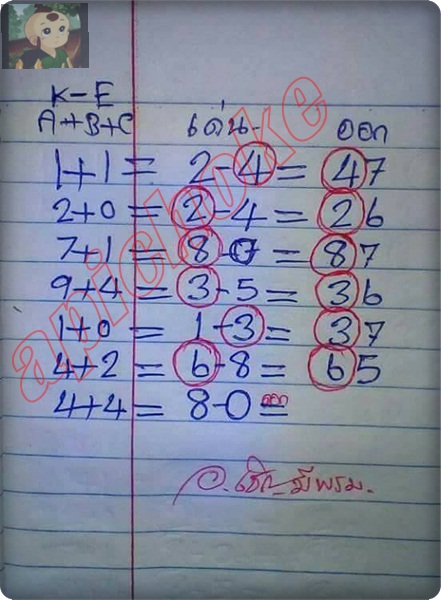 K-E
A+B+C เด่น- ออก
1+1= 2-4= 47
2+0= 2-4= 26
7+1= 8-0= 87
9+4= 3-5= 36
1+0= 1-3= 37
4+2= 6-8= 65
4+4= 8-0=
apichoke